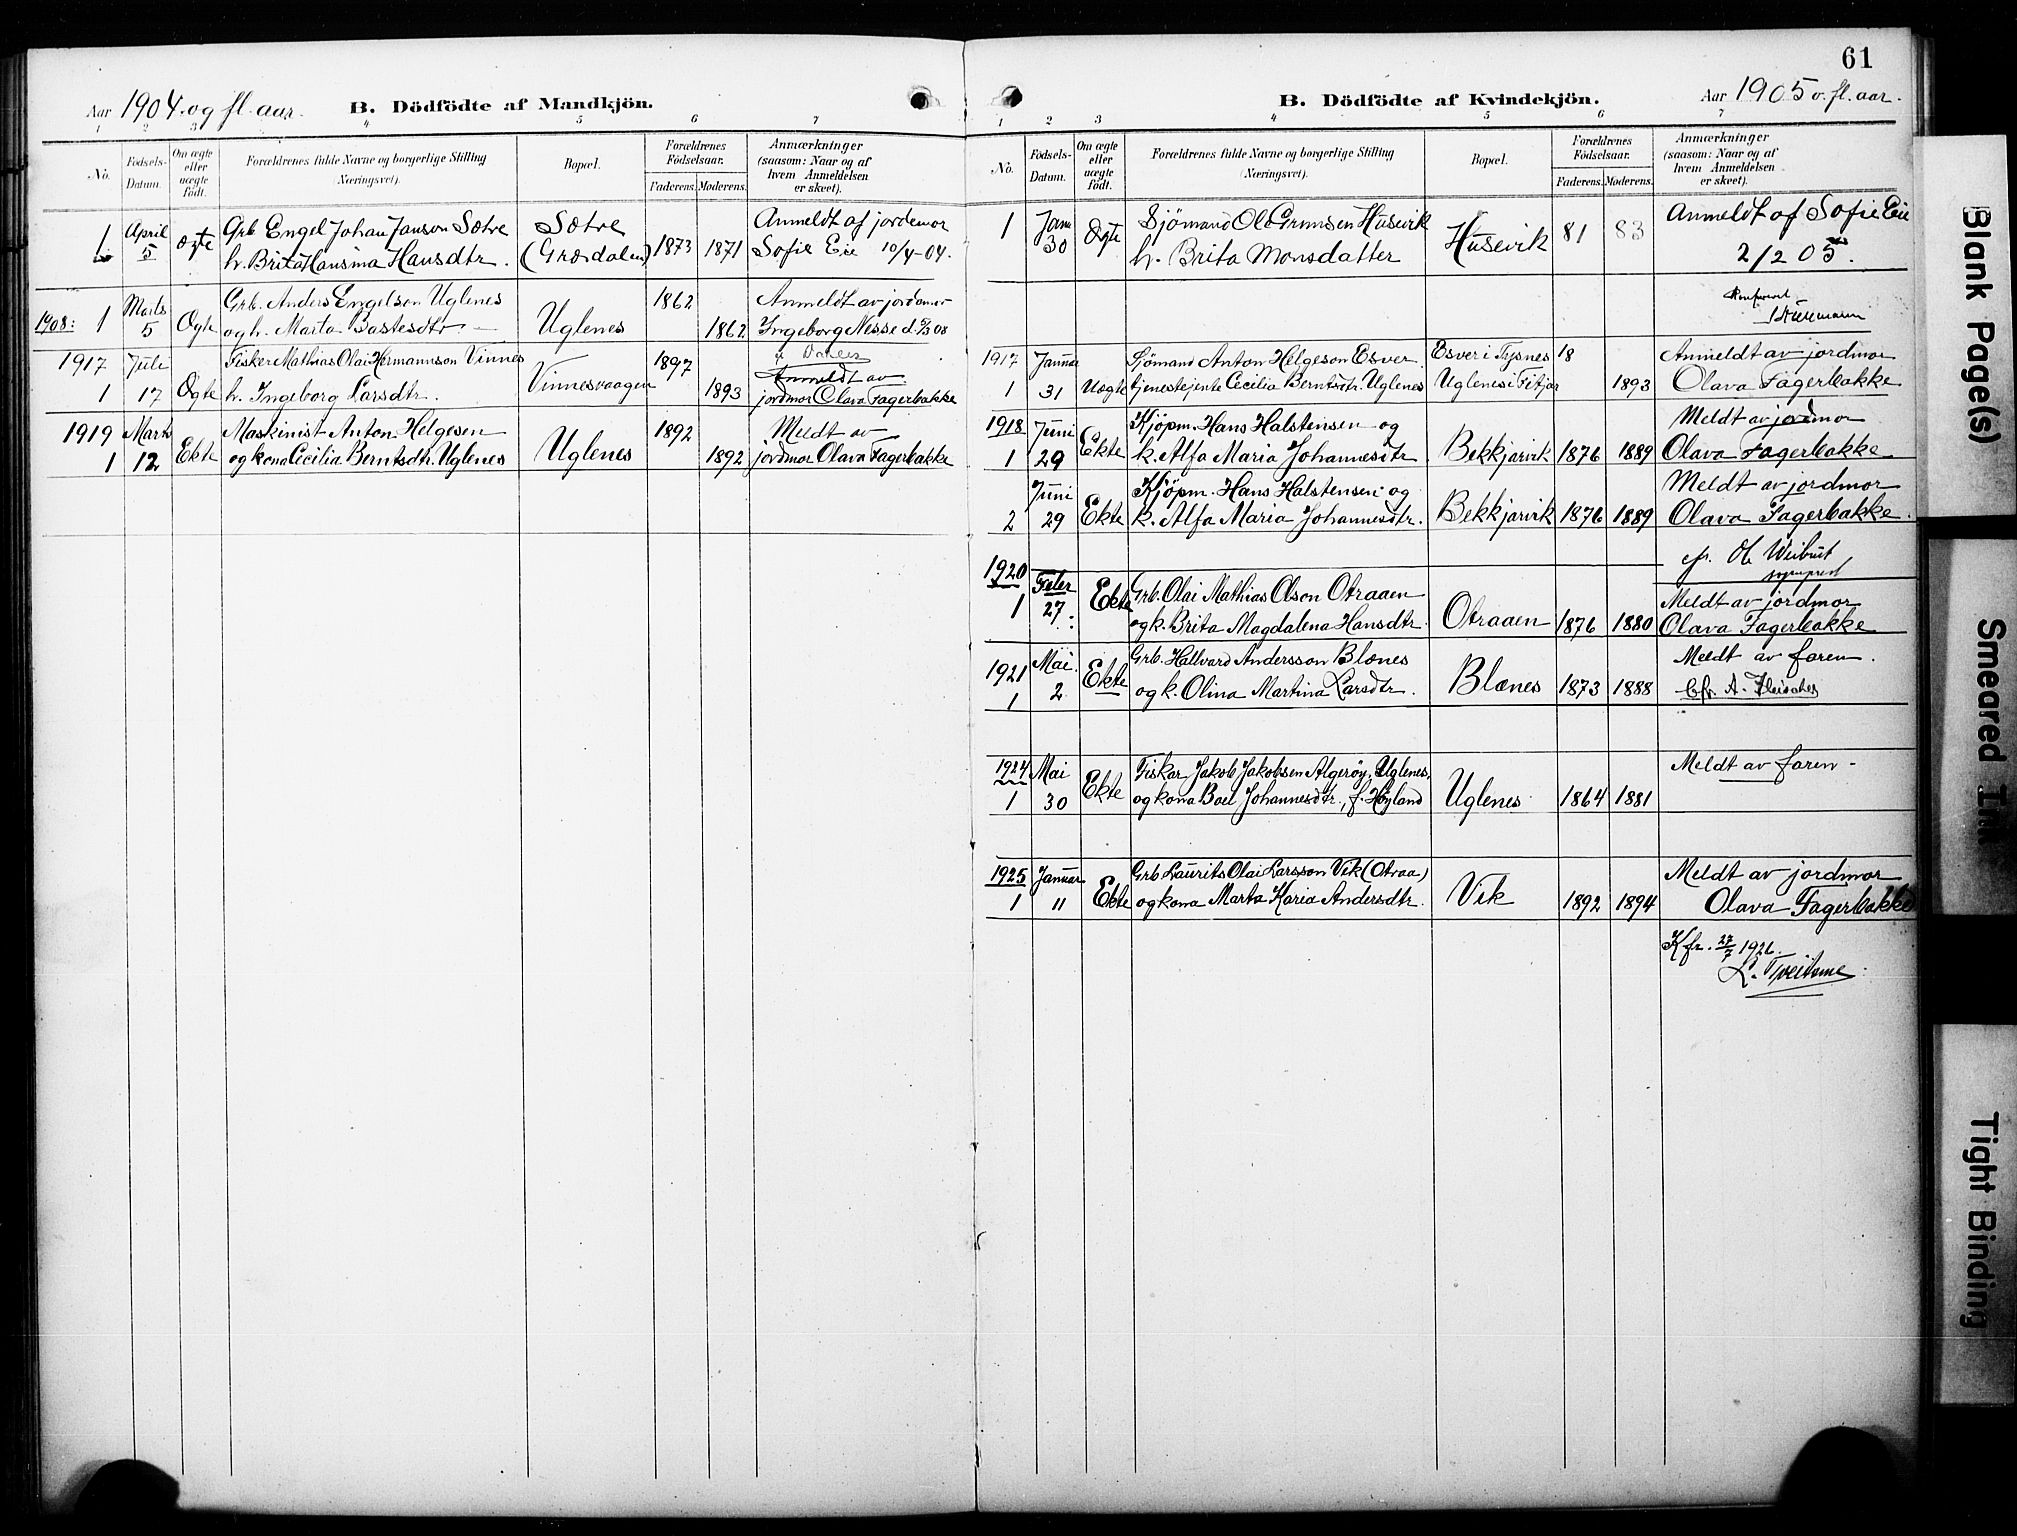 61
Aar 1904 og fl. aar. B. Dödfödte af Mandkjön.
1 2 3 4 5 6 7
No.
Fødsels-
Datum.
Om ægte
eller
uægte
født.
Forældrenes fulde Navne og borgerlige Stilling
(Næringsvei).
Bopæl.
Forældrenes
Fødselsaar.
Faderens. Moderens.
Anmærkninger
(saasom: Naar og af
hvem Anmeldelsen
er skeet).
1 April Ægte Grb Engel Johan Janson Sætre Sætre 1873 1871 Anmeldt af jordemor
5 h. Brita Hansina Hansdtr. (Grædalen) Sofie Eie 10/4-04.
1908: 1 Marts Ægte Grb. Anders Engelson Uglenes Uglenes 1862 Anmeldt av jordemor
5 og h. Marta Bastesdtr - 1862 Ingeborg Nesse d. 5/3 08
1917 Juli Fisker Mathias Olai Hermannson Vinnes Vinnesvaagen 1897 Anmeldt av
1 17 Ægte h. Ingeborg Larsdtr. 1893 jordmor Olava Fagerbakke
1919 Marts Maskinist Anton Helgesen Uglenes 1892 Meldt av
1 12 Ekte og kona Cecilia Berntsdtr. Uglenes 1892 jordmor Olava Fagerbakke
B. Dödfödte af Kvindekjön. Aar 1905 o. fl. aar.
1 2 3 4 5 6 7
No.
Fødsels-
Datum.
Om ægte
eller
uægte
født.
Forældrenes fulde Navne og borgerlige Stilling
(Næringsvei).
Bopæl.
Forældrenes
Fødselsaar.
Faderens. Moderens.
Anmærkninger
(saasom: Naar og af
hvem Anmeldelsen
er skeet).
1 Janu Ægte Sjömand Ole Grimsen Husevik Husevik 81 83 Anmeldt af Sofie Eie
30 h. Brita Monsdatter 2/2 05.
1917 Januar Sjømand Anton Helgeson Esver Esver i Tysnes 18 Anmeldt av jordmor
1 31 Uægte tjenestejente Cecilia Berntsdtr. Uglenes Uglenes i Fitjar 1893 Olava Fagerbakke
1918 Juni Ekte Kjøpm. Hans Halstensen og Meldt av jordmor
1 29 k. Alfa Maria Johannesdtr Bekkjarvik 1876 1889 Olava Fagerbakke
Juni Kjøpm. Hans Halstensen og Meldt av jordmor
2 29 Ekte k. Alfa Maria Johannesdtr. Bekkjarvik 1876 1889 Olava Fagerbakke.
1920 Feber Ekte Grb. Olai Mathias Olson Otraaen Meldt av jordmor
1 27. og k. Brita Magdalena Hansdtr. Otraaen 1876 1880 Olava Fagerbakke
1921 Mai Ekte Grb. Hallvard Andersson Blænes Meldt av faren.
1 2 og k. Olina Martina Larsdtr. Blænes 1873 1888 Cfr. A. Fleischer
1924 Mai Ekte Fiskar Jakob Jakobsen Algerøy, Uglenes, Meldt av faren -
1 30 og kona Boel Johannesdtr., f. Høyland Uglenes 1864 1881
1925 Januar Ekte Grb Laurits Olai Larsson Vik (Otraa) Meldt av jordmor
1 11 og kona Marta Karia Andersdtr. Vik 1892 1894 Olava Fagerbakke
Kfr. 27/7 1926.
L. Tveitane
Blank Page(s)
Smeared Ink
Tight Binding